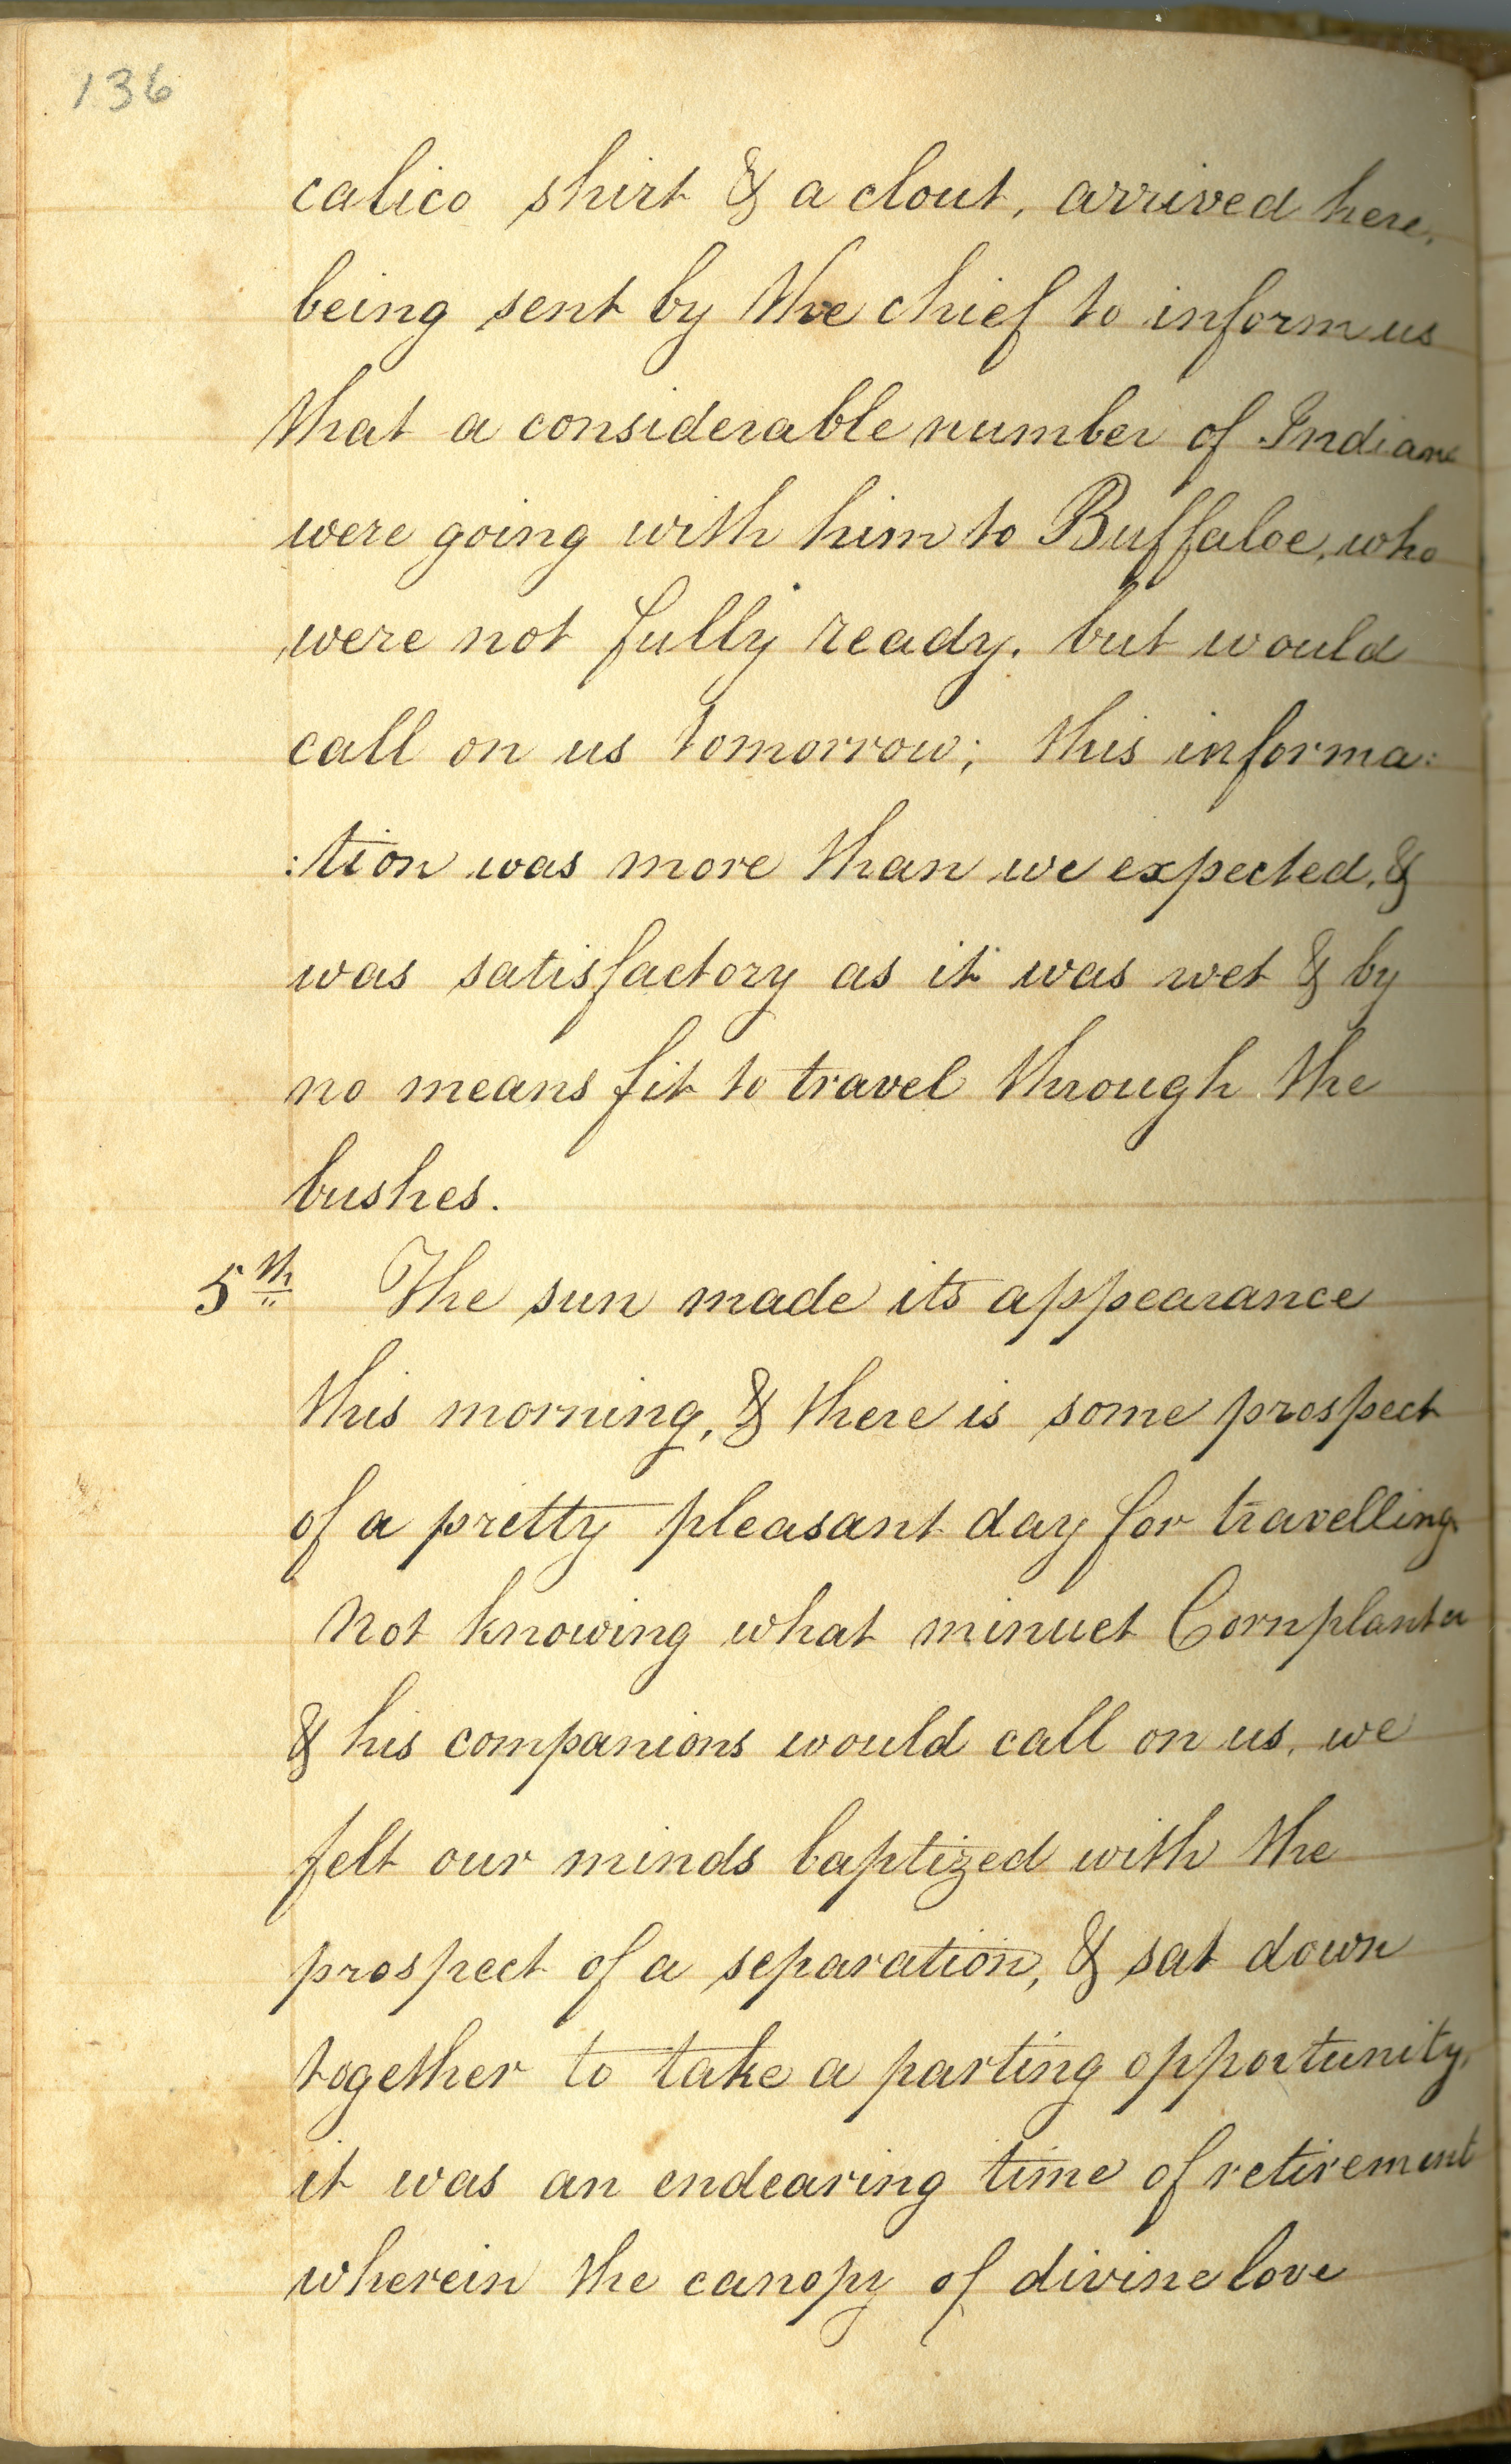 136
calico shirt & a clout, arrived here,
being sent by the chief to inform us
that a considerable number of Indians
were going with him to Buffaloe, who
were not fully ready, but would
call on us tomorrow; this informa:
:tion was more than we expected, &
was satisfactory as it was wet & by
no means fit to travel through the
bushes.
5th The sun made its appearance
this morning, & there is some prospect
of a pretty pleasant day for travelling
not knowing what minuet Cornplanter
& his companions would call on us, we
felt our minds baptized with the
prospect of a separation, & sat down
together to take a parting opportunity,
it was an endearing time of retirement
wherein the canopy of divine love